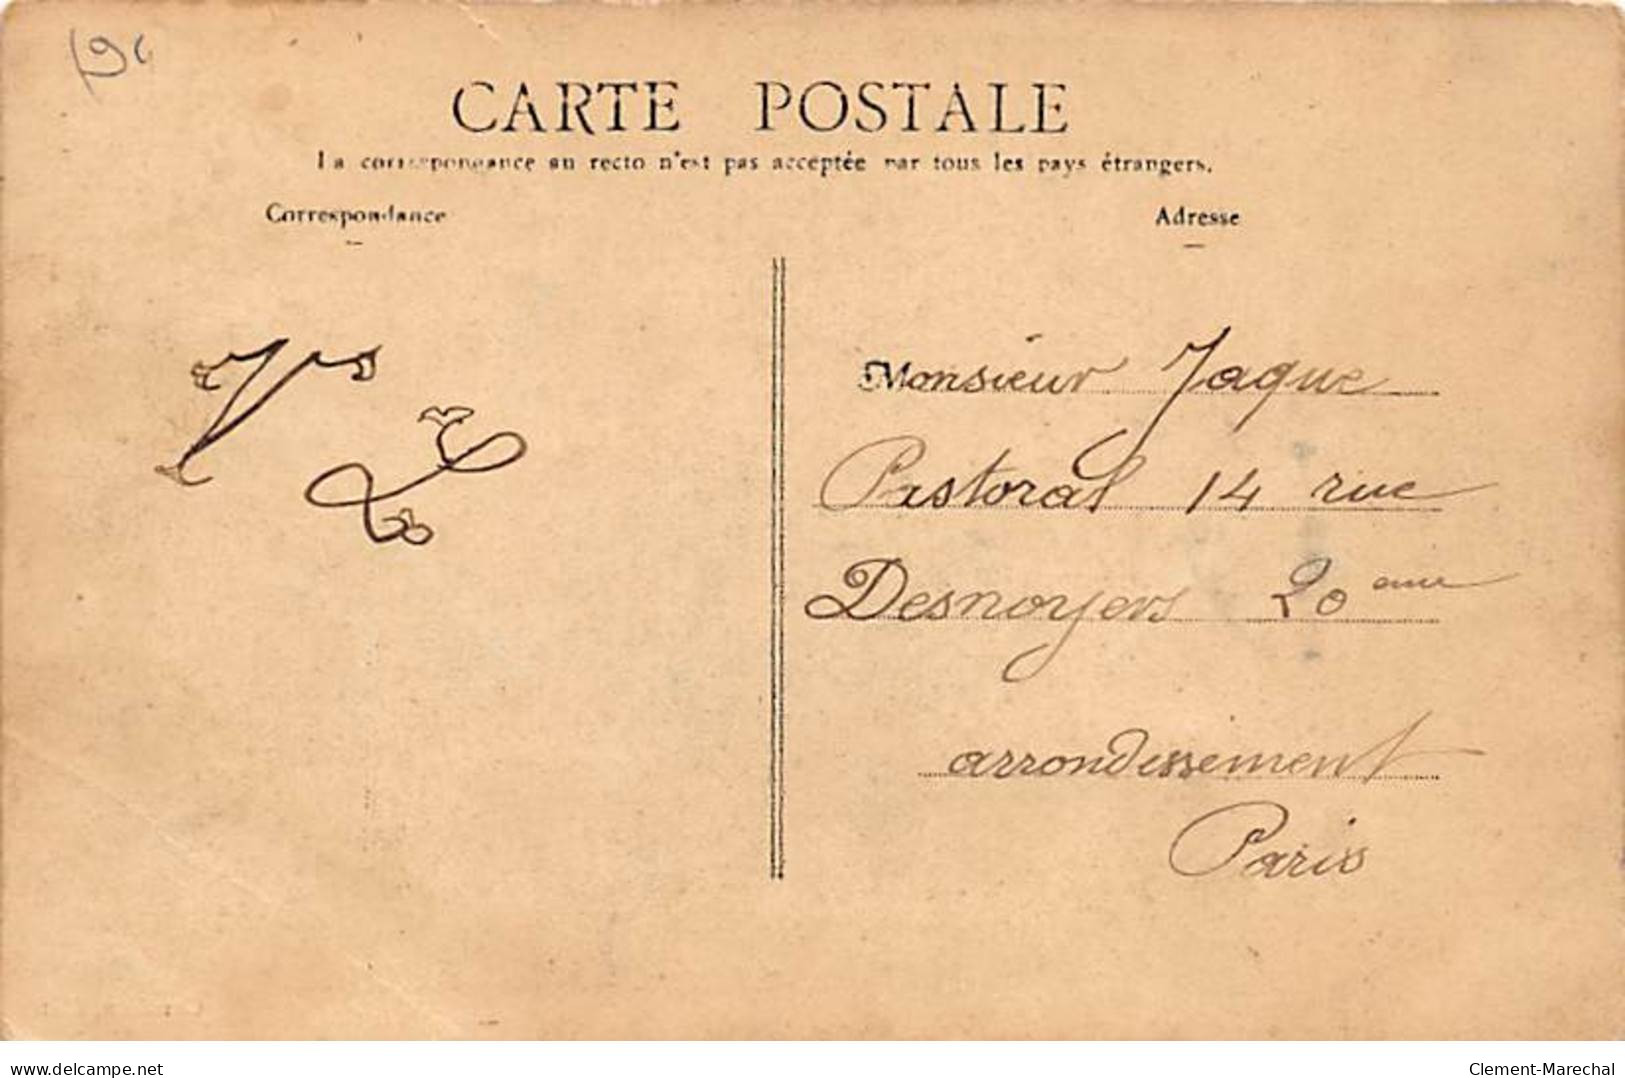 CARTE POSTALE
La correspondance au recto n'est pas acceptée par tous les pays étrangers.
Correspondance
Adresse
V L
Monsieur Jaque
Pastoral 14 rue
Desnoyers 20 eme
arrondissement
Paris
delcampe.net
Clement-Marechal